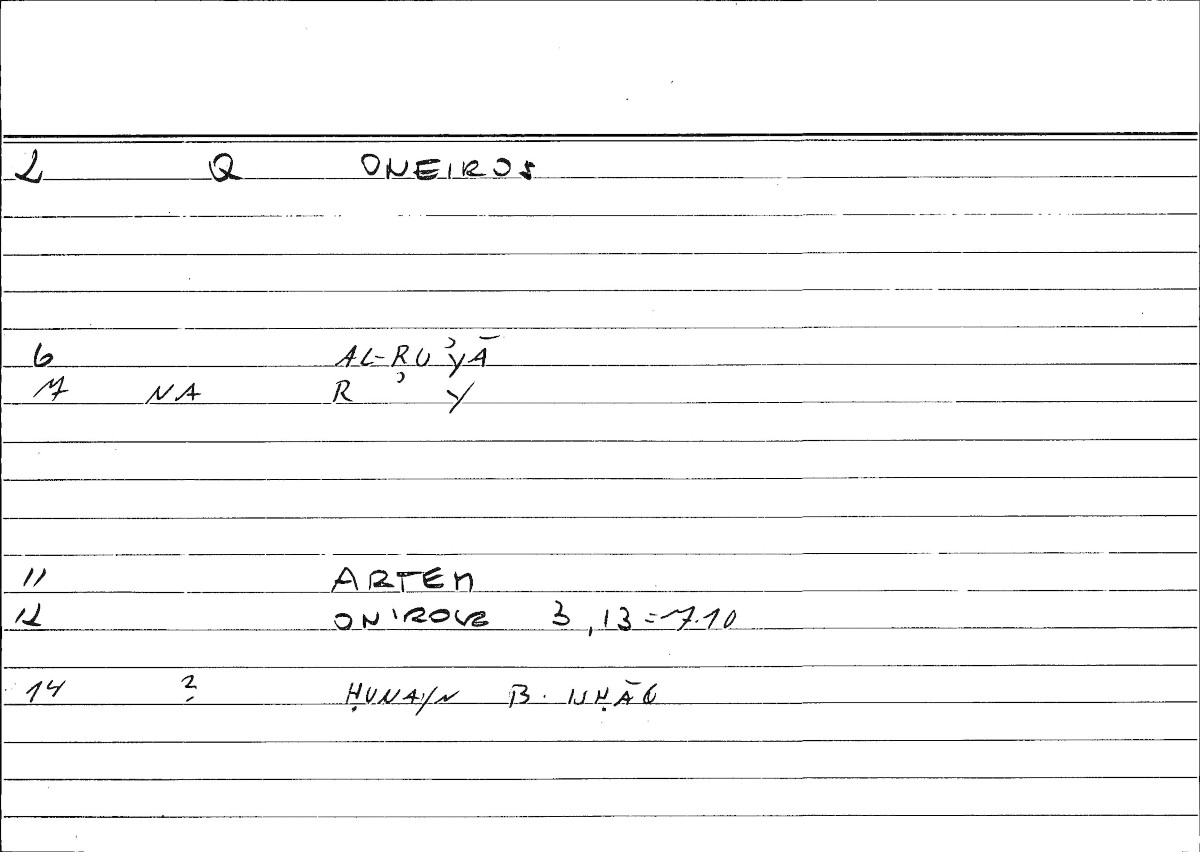 2 Q ONEIROS
6 AL-RUʾYĀ
7 NA R ʾ Y
11 ARTEM
12 ONIROCR 3,13=7.10
14 ? ḤUNAYN B. ISḤĀQ